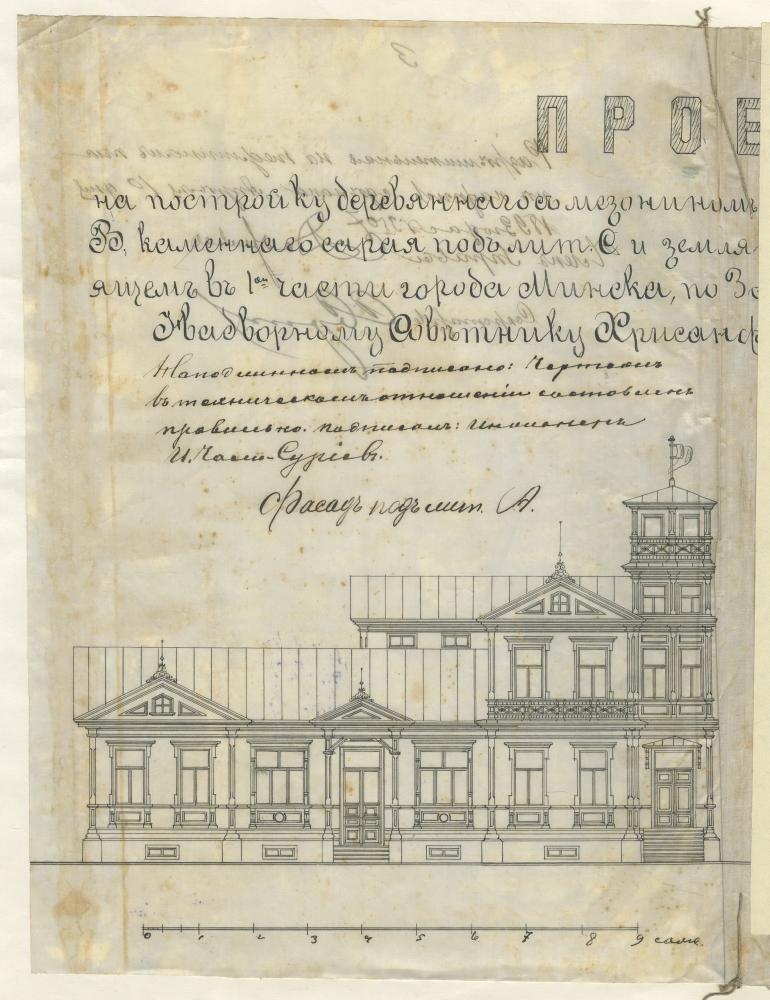 ПРОЕ
на постройку деревяннаго съ мезониномъ
В, каменнаго сарая подъ лит. С и земля-
ящемъ въ 1ой части города Минска, по За
Надворному Совѣтнику Хрисанф
На подлинномъ подписано: Чертежъ
въ техническомъ отношеніи составленъ
правильно. подписалъ: Инженеръ
И.
Фасадъ подъ лит. А.
0 1 2 3 4 5 6 7 8 9 саж.